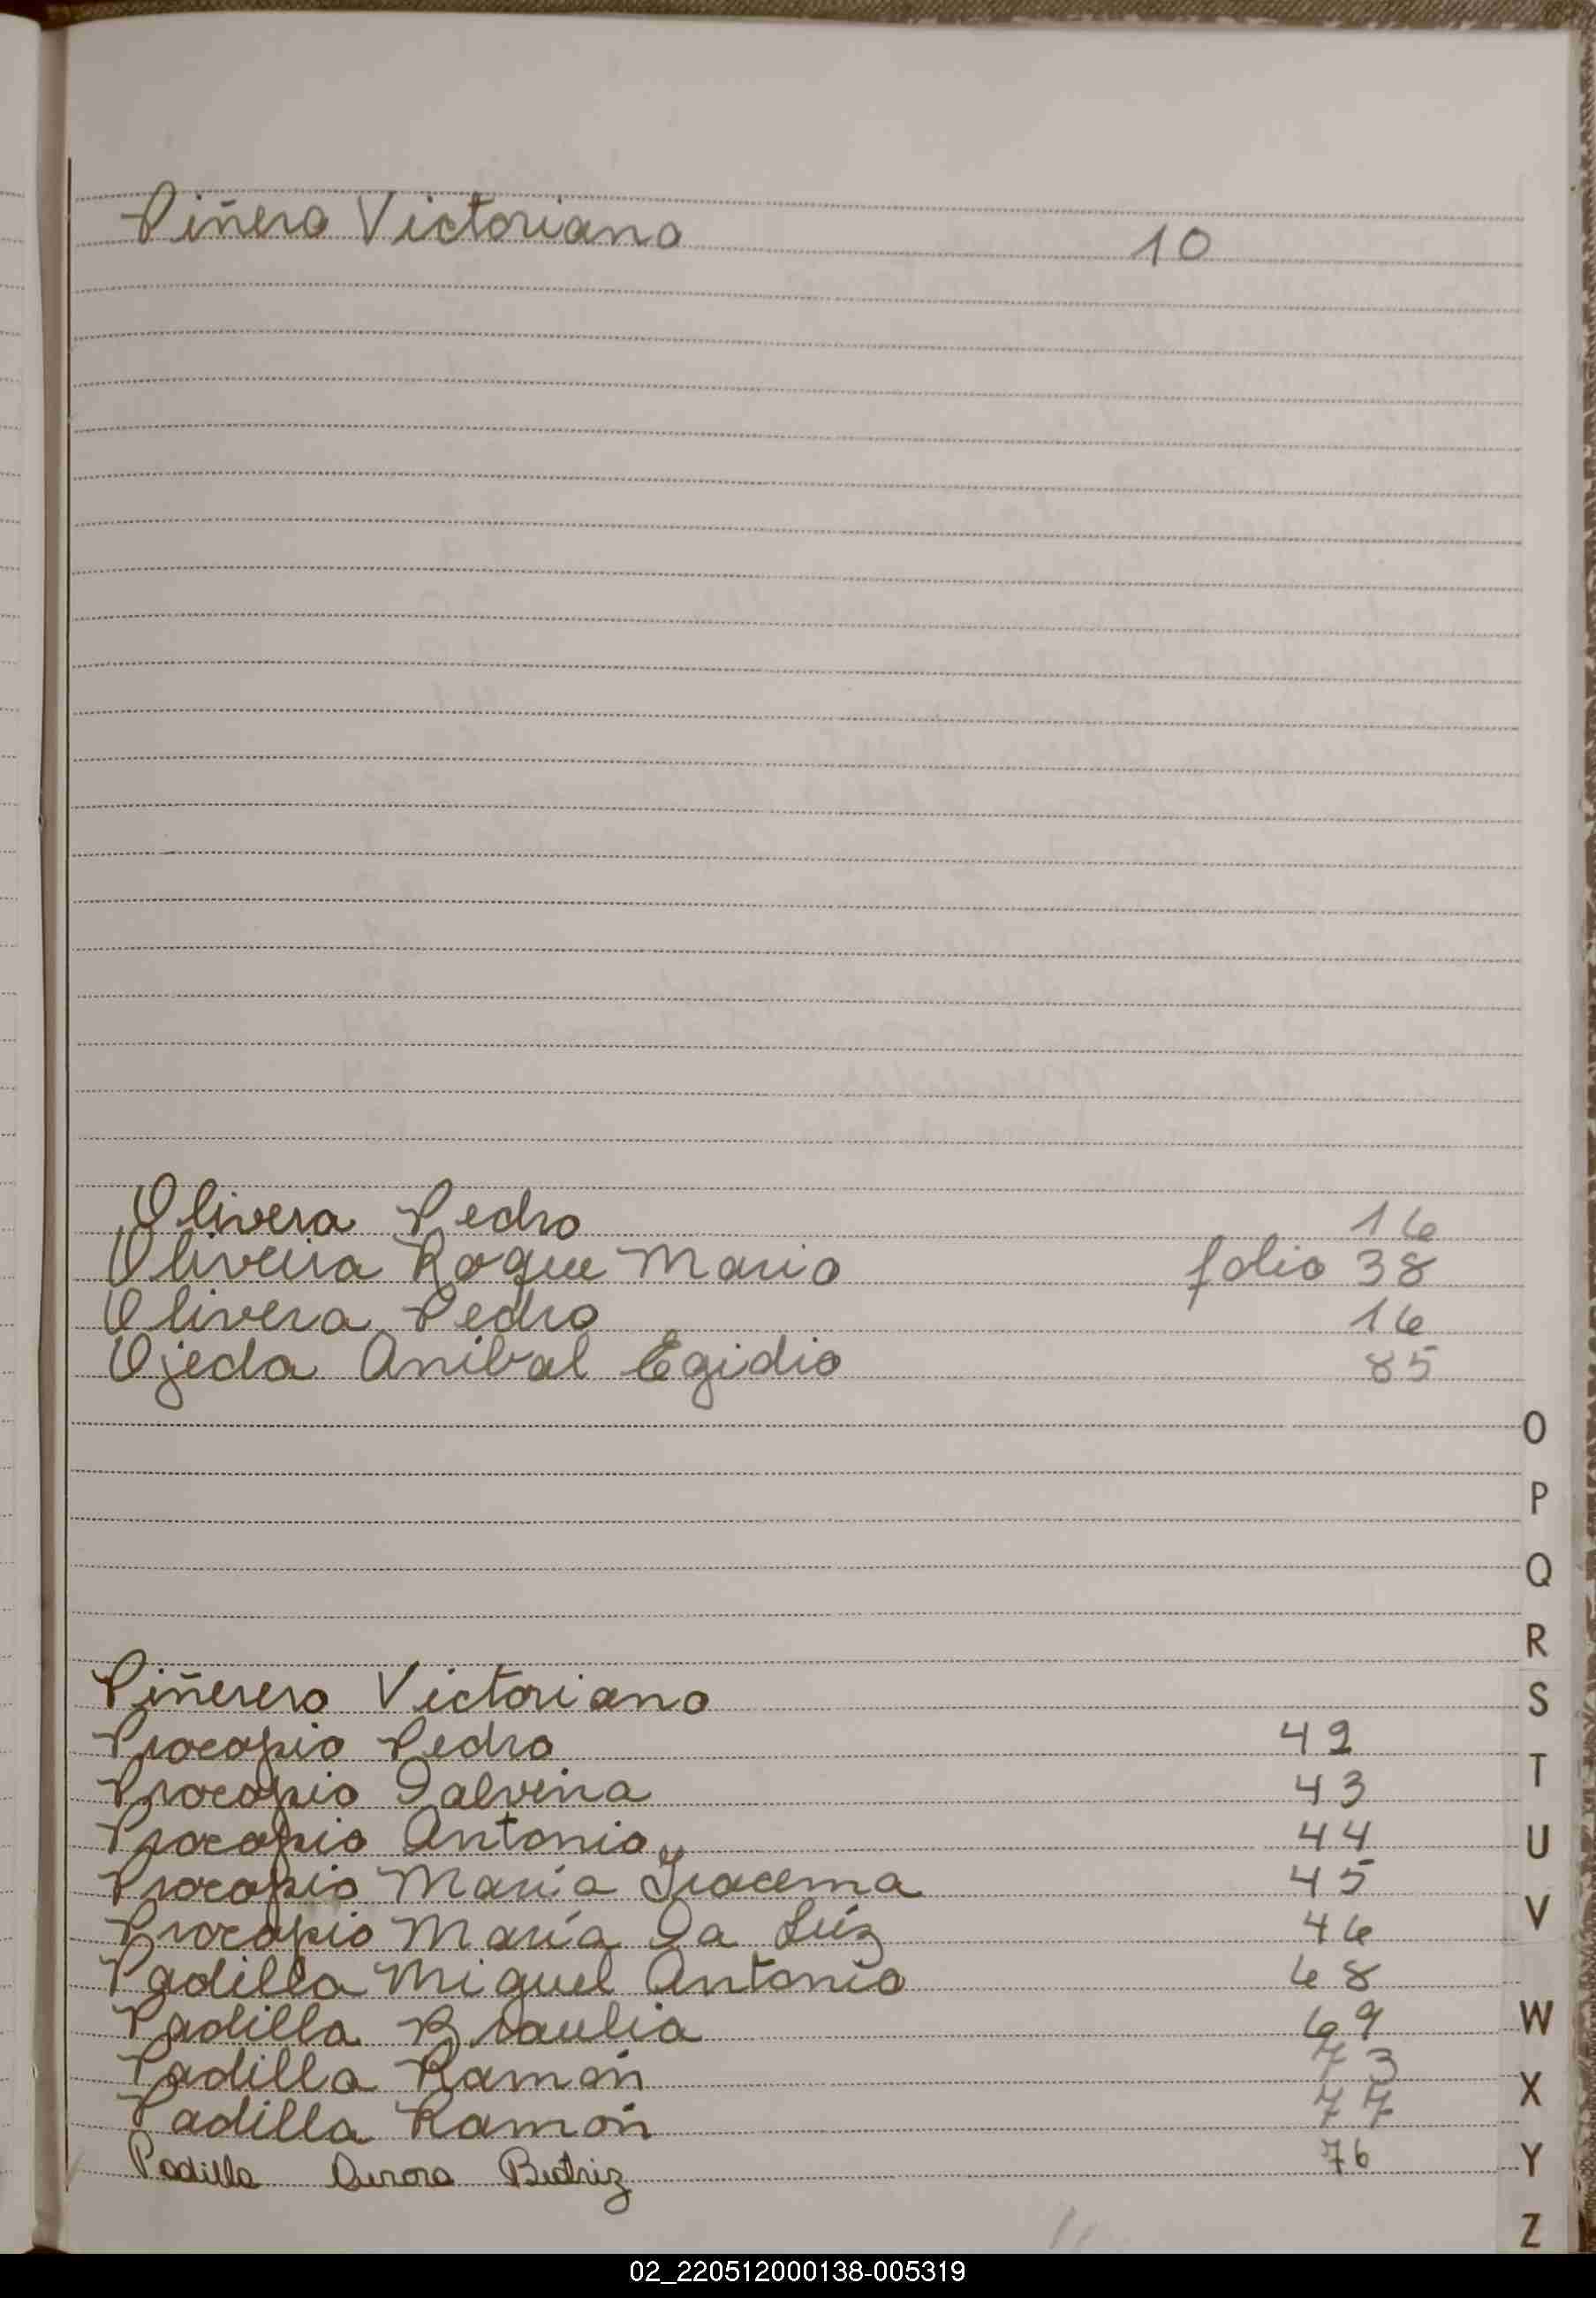 Piñero Victoriano 10
Olivera Pedro 16
Oliveira Roque Mario folio 38
Olivera Pedro 16
Ojeda Anibal Egidio 85
O
P
Q
R
Piñerero Victoriano S
Procopio Pedro 42
Procopio Dalvina 43 T
Procopio Antonio 44 U
Procopio María Iracema 45
Procopio María Da Lúz 46 V
Padilla Miguel Antonio 68
Padilla Braulia 69 W
Padilla Ramón 73 X
Padilla Ramón 77
Padilla Aurora Beatriz 76 Y
Z
02_220512000138-005319